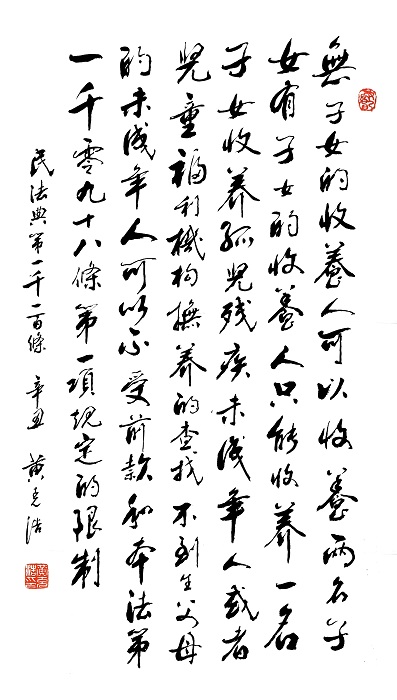 無子女的收養人可以收養兩名子
女有子女的收養人只能收养一名
子女收养孤兒残疾未成年人或者
兒童福利機构撫养的查找不到生父母
的未成年人可以不受前款和本法第
一千零九十八條第一項規定的限制
民法典第一千一百條 辛丑 黄克浩